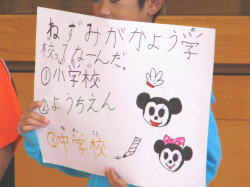 ねずみがかよう学
校ってなーんだ。
①小学校
②ようちえん
③中学校